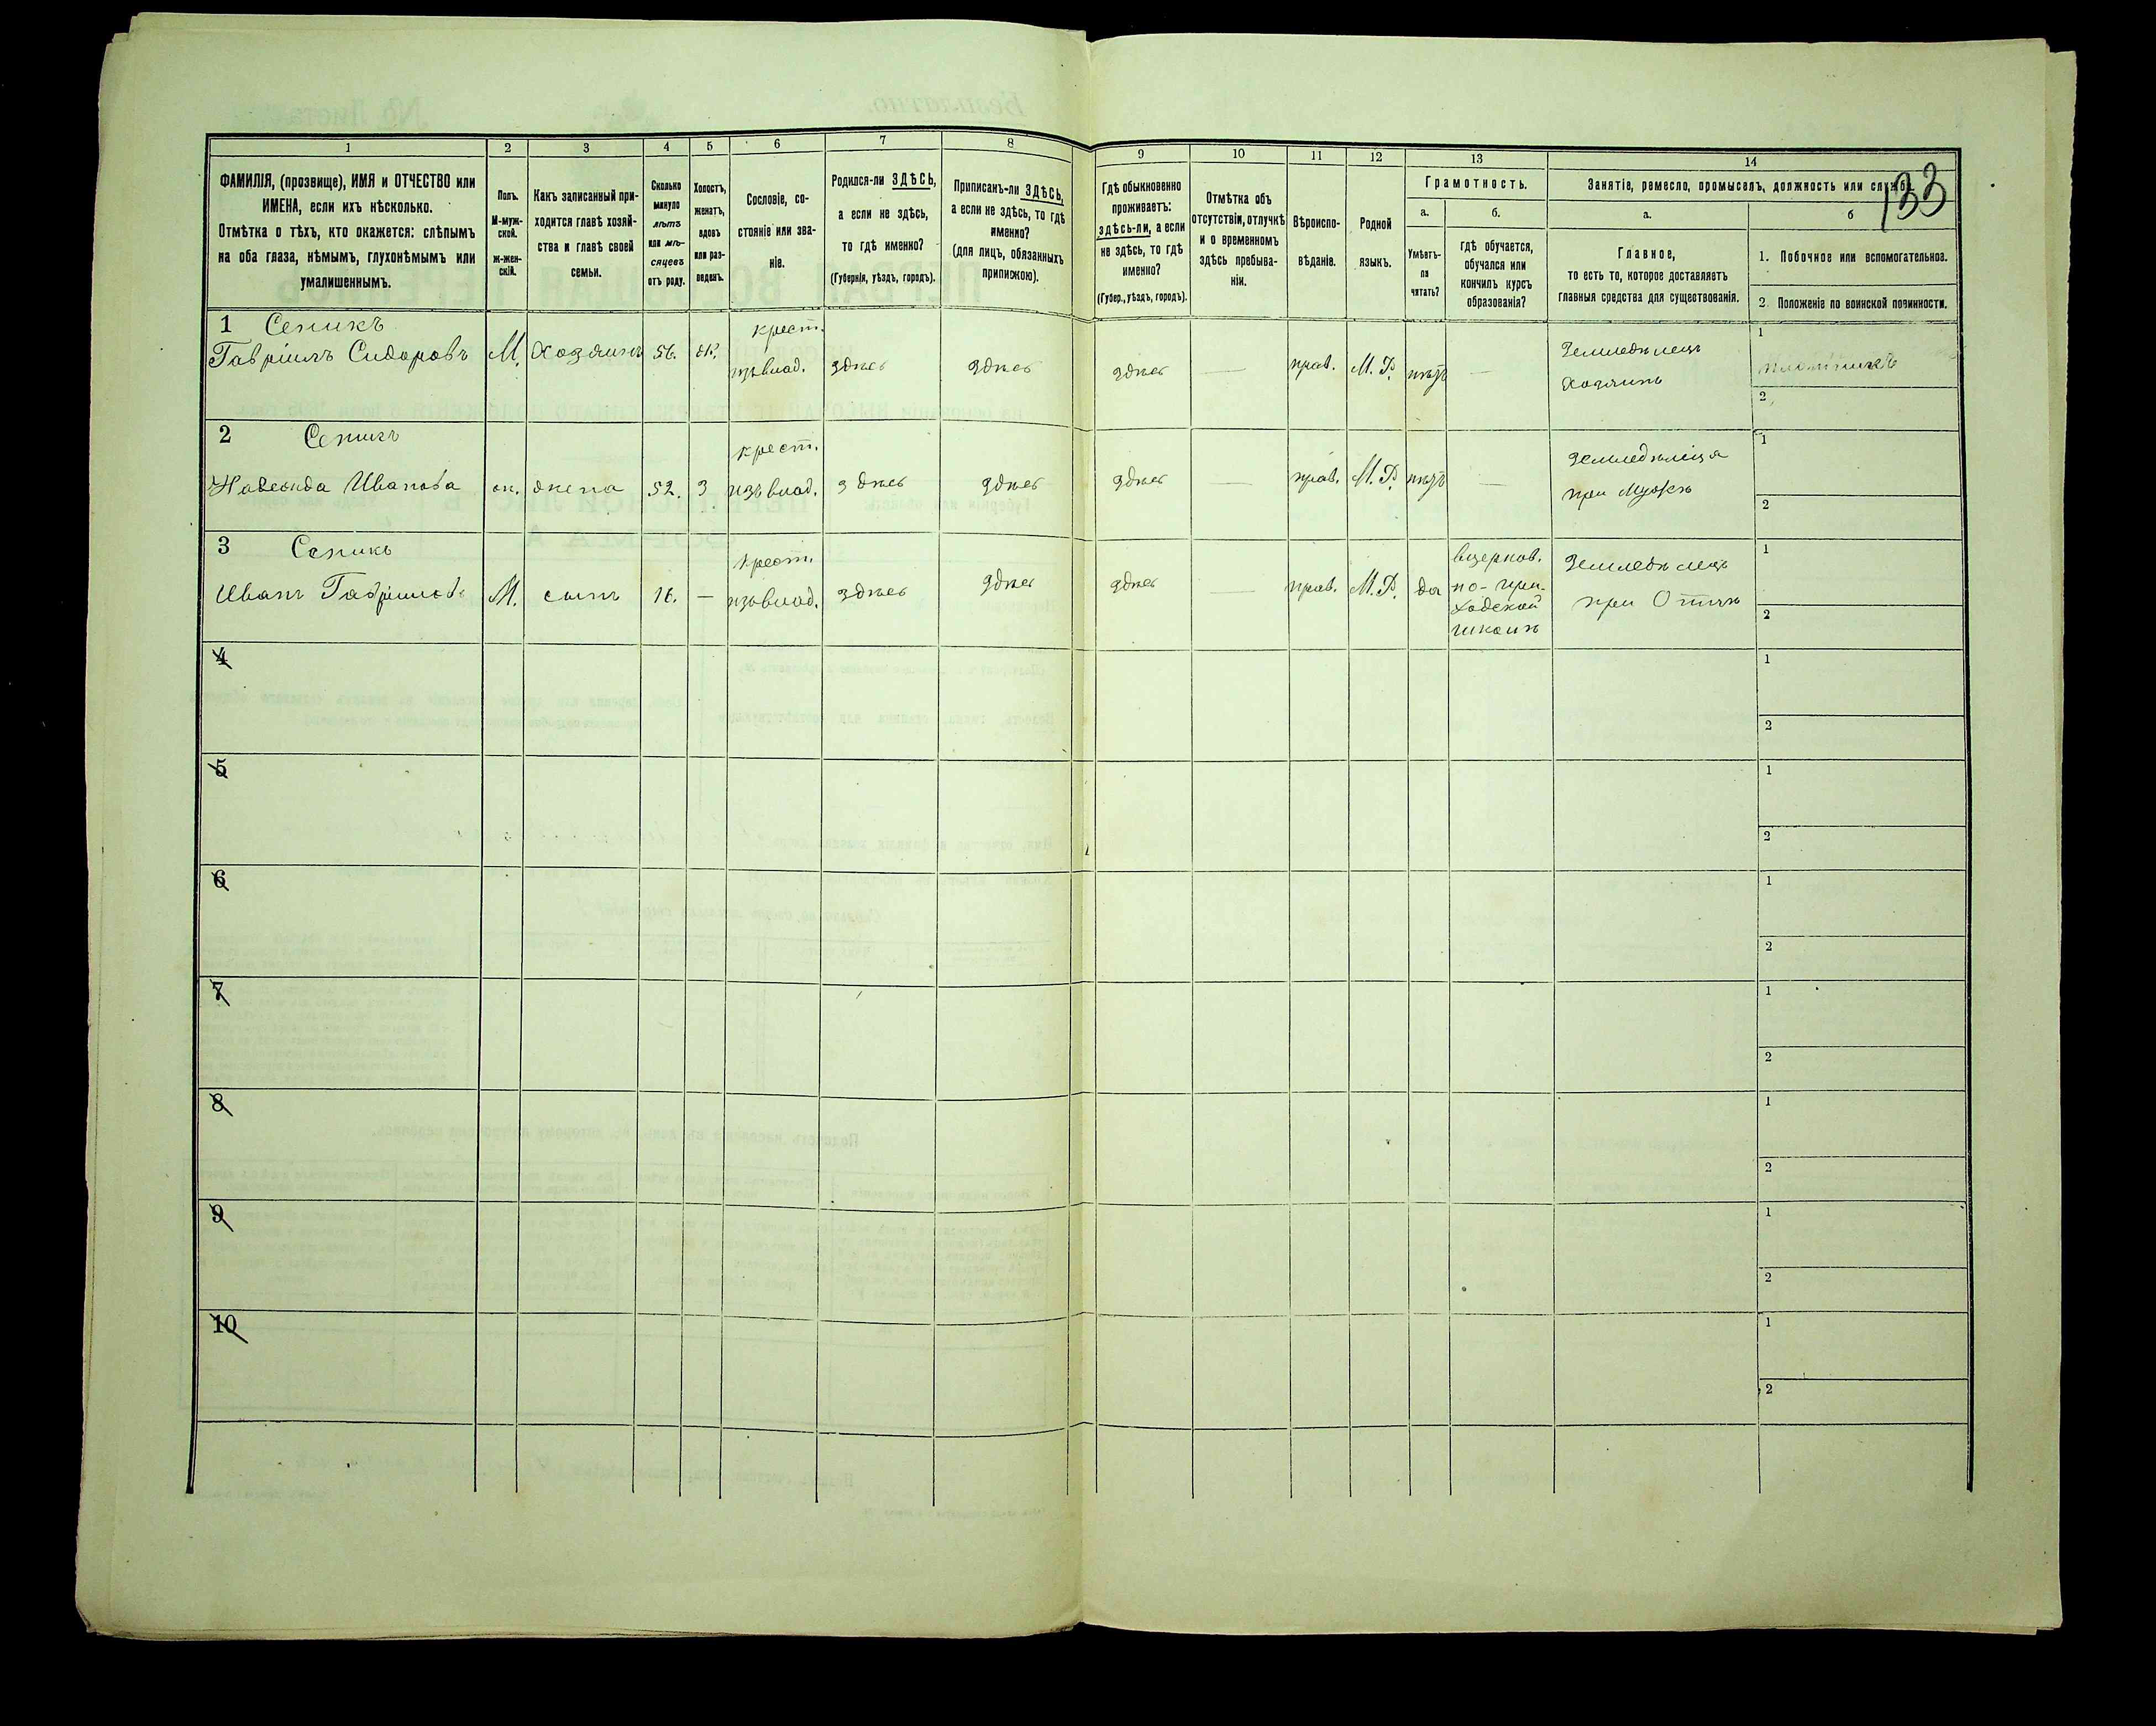 133
1 2 3 4 5 6 7 8 9 10 11 12 13 14
ФАМИЛІЯ, (прозвище), ИМЯ и ОТЧЕСТВО или
ИМЕНА, если ихъ нѣсколько.
Отмѣтка о тѣхъ, кто окажется: слѣпымъ
на оба глаза, нѣмымъ, глухонѣмымъ или
умалишеннымъ.
Полъ.
М-муж-
ской.
ж-жен-
скій.
Какъ записанный при-
ходится главѣ хозяй-
ства и главѣ своей
семьи.
Сколько
минуло
лѣтъ
или мѣ-
сяцевъ
отъ роду.
Холостъ,
женатъ,
вдовъ
или раз-
веденъ.
Сословіе, со-
стояніе или зва-
ніе.
Родился-ли ЗДѢСЬ,
а если не здѣсь,
то гдѣ именно?
(Губернія, уѣздъ, городъ).
Приписанъ-ли ЗДѢСЬ,
а если не здѣсь, то гдѣ
именно?
(для лицъ, обязанныхъ
припискою).
Гдѣ обыкновенно
проживаетъ:
здѣсь-ли, а если
не здѣсь, то гдѣ
именно?
(Губер., уѣздъ, городъ).
Отмѣтка объ
отсутствіи, отлучкѣ
и о временномъ
здѣсь пребыва-
ніи.
Вѣроиспо-
вѣданіе.
Родной
языкъ.
Грамотность.
а.
Умѣетъ-
ли
читать?
б.
гдѣ обучается,
обучался или
кончилъ курсъ
образованія?
Занятіе, ремесло, промыселъ, должность или служба.
а.
Главное,
то есть то, которое доставляетъ
главныя средства для существованія.
б
1. Побочное или вспомогательное.
2 Положеніе по воинской повинности.
1 Сепикъ
Гавріилъ Сидоровъ М. Хозяинъ 56. ж. крест.
изъ влад. здѣсь здѣсь здѣсь — прав. М. Р. нѣтъ — Земледѣлецъ
Хозяинъ
1 плотникъ
2
2 Сепикъ
Надежда Иванова ж. жена 52. З крест.
изъ влад. здѣсь здѣсь здѣсь — прав. М. Р. нѣтъ — Земледѣлица
при Мужѣ
1
2
3 Сепикъ
Иванъ Гавріиловъ М. сынъ 16. — крест.
изъ влад. здѣсь здѣсь здѣсь — прав. М. Р. да вцерков.
но-при-
ходской
школѣ
Земледѣлецъ
при Отцѣ
1
2
4
1
2
5
1
2
6
1
2
7
1
2
8
1
2
9
1
2
10
1
2